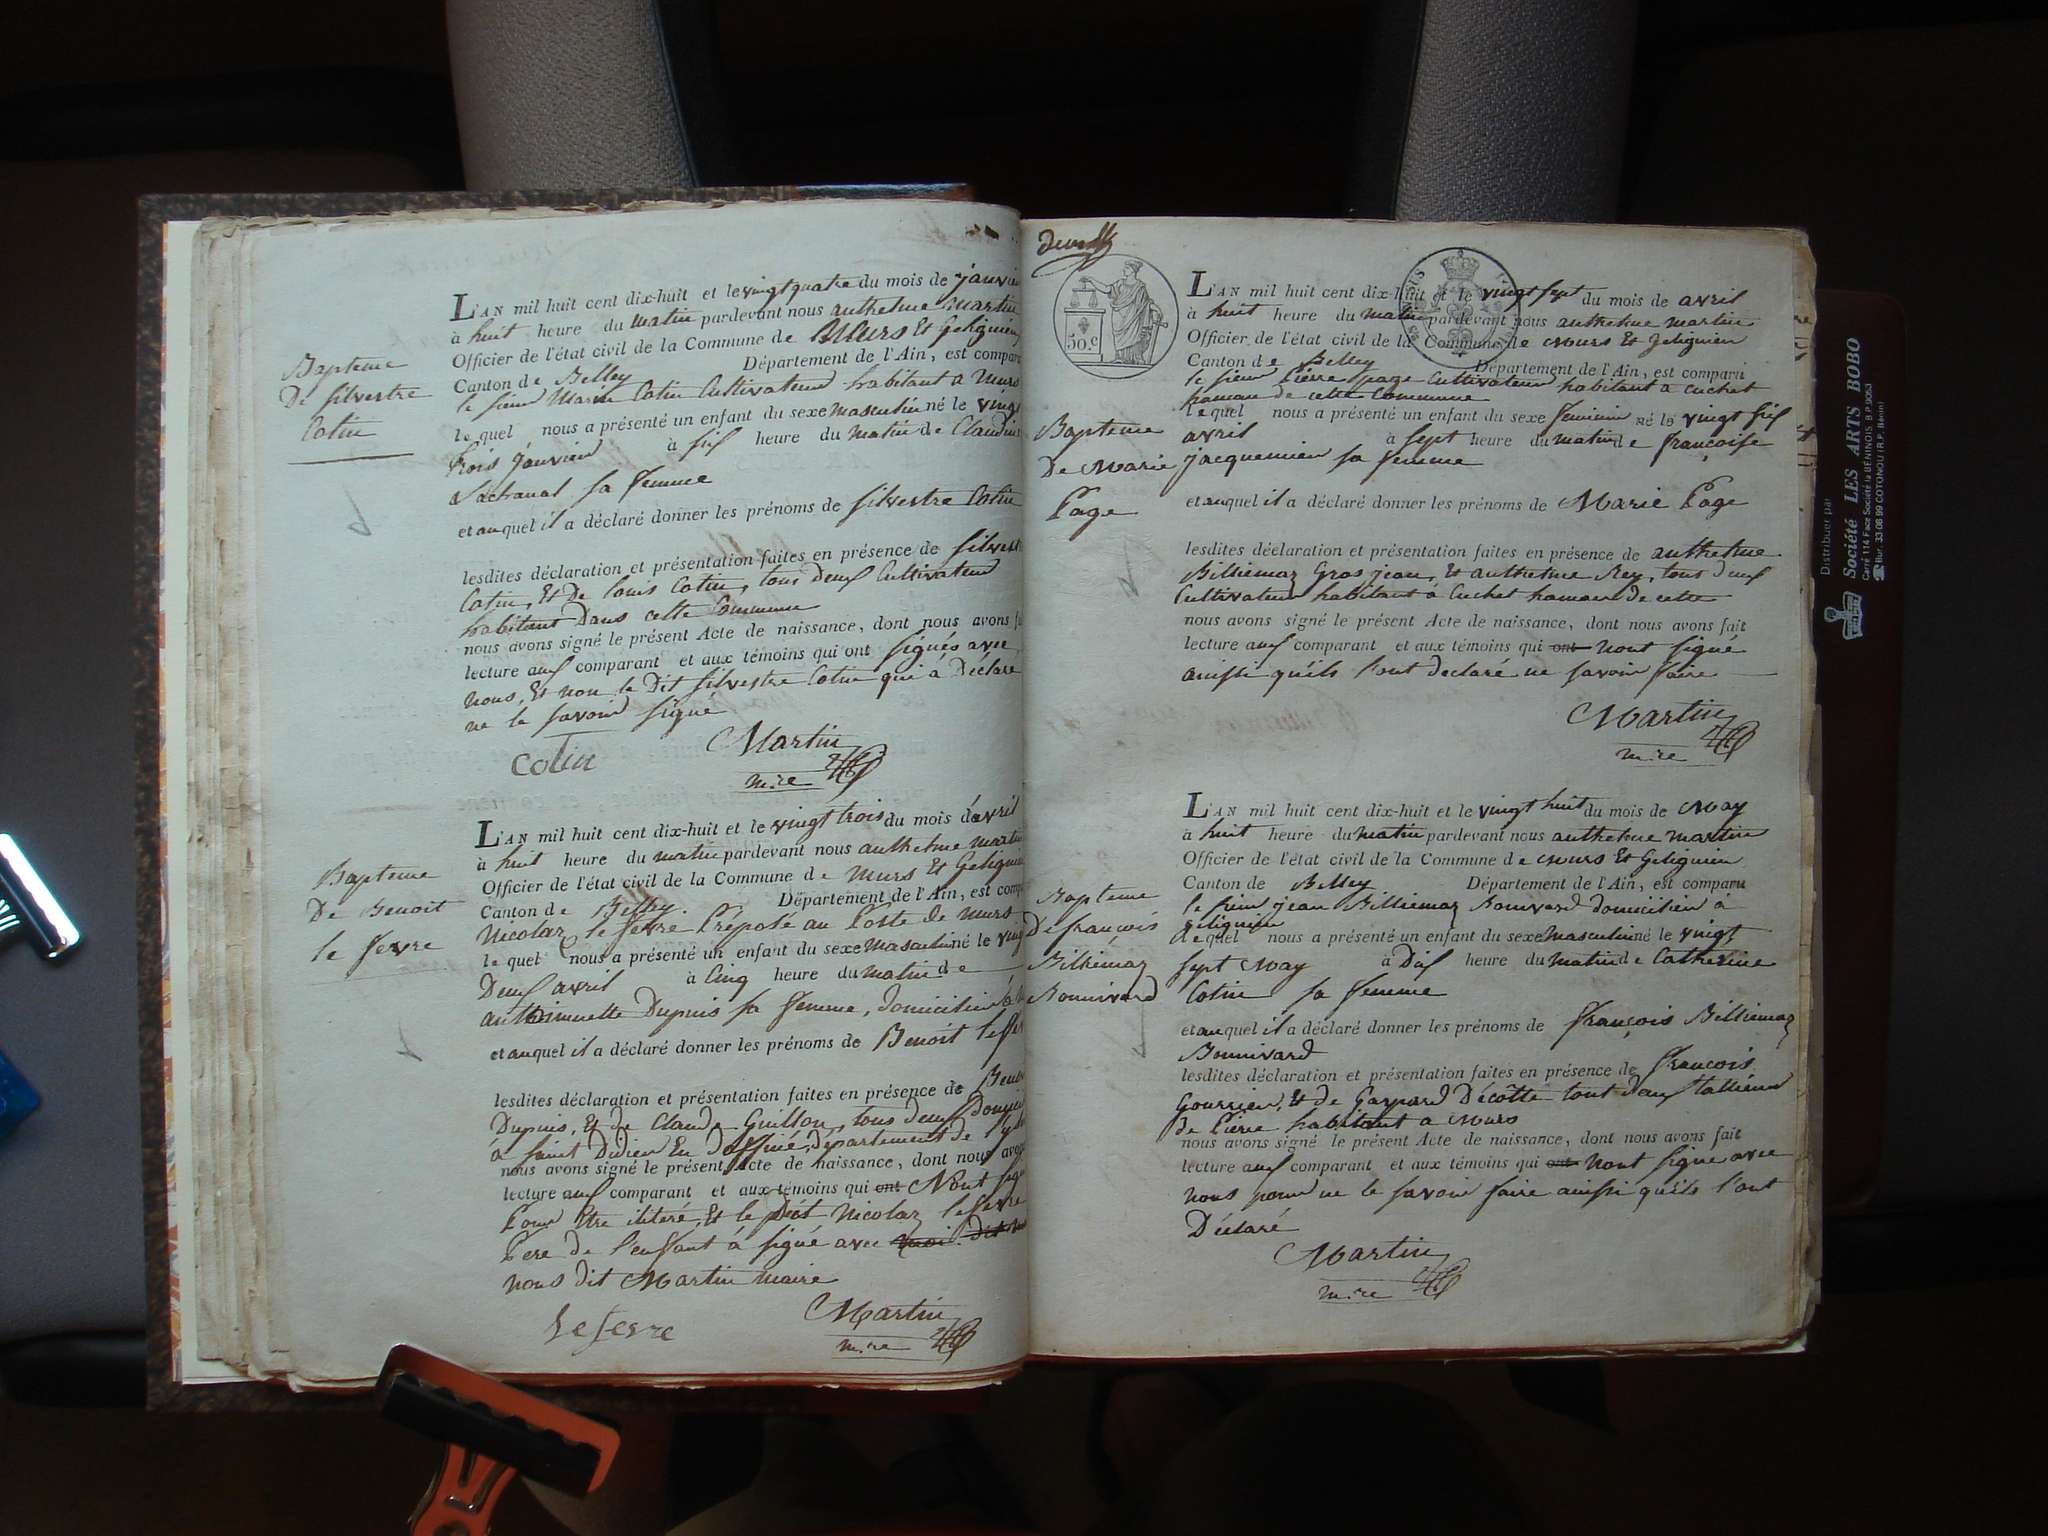 Bapteme
De silvestre
Cotin
L'AN mil huit cent dix-huit et le vingt quatre du mois de janvier
à huit heure du matin pardevant nous anthelme Martin
Officier de l'état civil de la Commune de Murs Et Gelignieu
Canton de Belley Département de l'Ain, est comparu
le sieur Marin Cotin Cultivateur habitant a Murs
lequel nous a présenté un enfant du sexe masculin né le vingt
trois janvier à six heure du matin de Claudine
sa femme
et auquel il a déclaré donner les prénoms de silvestre Cotin
lesdites déclaration et présentation faites en présence de silvestre
Cotin, Et De louis Cotin, tous deux Cultivateur
habitant Dans cette Commune
nous avons signé le présent Acte de naissance, dont nous avons fait
lecture aux comparant et aux témoins qui ont signés avec
nous, Et non le Dit silvestre Cotin qui à Déclare
ne le savoir signé
Cotin Martin
m.re
Bapteme
De Benoit
le fevre
L'AN mil huit cent dix-huit et le vingt trois du mois d'avril
à huit heure du matin pardevant nous anthelme martin
Officier de l'état civil de la Commune de Murs Et Gelignieu
Canton de Belley Département de l'Ain, est comparu
Nicolaz le fevre Préposé au Poste de Murs
lequel nous a présenté un enfant du sexe masculin né le vingt
Deux avril à Cinq heure du matin de
Dupuis sa femme, domicilier à
et auquel il a déclaré donner les prénoms de Benoit le fevre
lesdites déclaration et présentation faites en présence de Benoit
Dupuis, Et de Claude Guillon, tous deux
à saint Didier En daffiné, département de
nous avons signé le présent Acte de naissance, dont nous avons
lecture aux comparant et aux témoins qui ont N'ont signé
Pour Etre iliteré, Et le Dit Nicolaz lefevre
Pere de l'enffant à signé avec
nous dit Martin maire
Lefevre Martin
m.re
50.c
L'AN mil huit cent dix-huit et le vingt sept du mois de avril
à huit heure du matin pardevant nous anthelme martin
Officier de l'état civil de la Commune de Murs Et Gelignieu
Canton de Belley Département de l'Ain, est comparu
le sieur Pierre page Cultivateur habitant a Cuchet
hamau de cette Commune
lequel nous a présenté un enfant du sexe feminin né le vingt six
avril à sept heure du matin de françoise
jacquemier sa femme
Bapteme
De Marie
Page
et auquel il a déclaré donner les prénoms de Marie Page
lesdites déclaration et présentation faites en présence de anthelme
Billiemaz Gros jean, Et anthelme Rey, tous deux
Cultivateur habitant à Cuchet hamau de cette
nous avons signé le présent Acte de naissance, dont nous avons fait
lecture aux comparant et aux témoins qui ont n'ont signé
ainssi qu'éils l'ont declaré ne savoir faire
Martin
m.re
L'AN mil huit cent dix-huit et le vingt huit du mois de May
à huit heure du matin pardevant nous anthelme martin
Officier de l'état civil de la Commune de Murs Et Gelignieu
Canton de Belley Département de l'Ain, est comparu
le sieur jean Billiemaz Bonnivard domicilier à
gelignieu
lequel nous a présenté un enfant du sexe masculin né le vingt
sept May à Dix heure du matin de Catherine
Cotin sa femme
Bapteme
De françois
Billiémaz
Bonnivard
et auquel il a déclaré donner les prénoms de françois Billiemaz
Bonnivard
lesdites déclaration et présentation faites en présence de françois
Et de Gaspard Décôtte tout deux tallieur
de Pierre habitant a Murs
nous avons signé le présent Acte de naissance, dont nous avons fait
lecture aux comparant et aux témoins qui ont n'ont signe avec
nous pour ne le savoir faire ainssi qu'éils l'ont
Déclaré
Martin
m.re
Distribuer par
Société LES ARTS BOBO
Carré 114 Face Société la BÉNINOIS B.P. 9053
Bur. 33 06 99 COTONOU (R.P. Bénin)